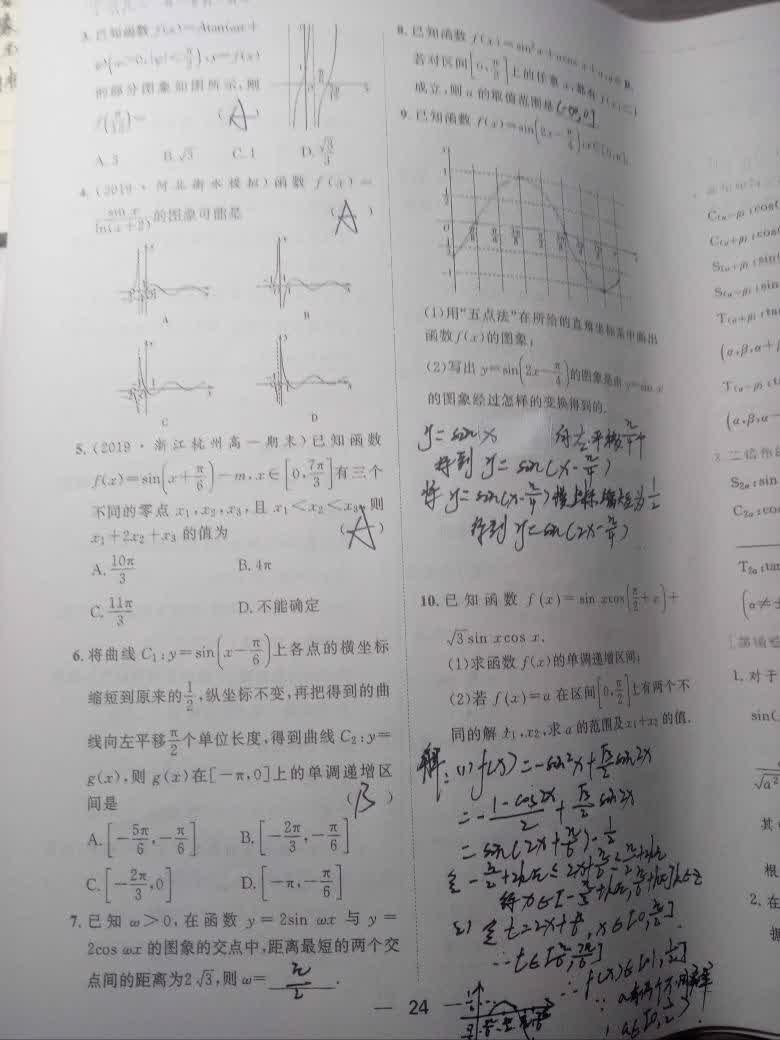 3.已知函数 f(x)=Atan(ωx+
φ)(ω>0,|φ|<π/2),y=f(x)
的部分图象如图所示,则
f(π/24)= ( A )
A.3 B.√3 C.1 D.√3/3
4.(2019·河北衡水模拟)函数 f(x)=
sin x/ln(x+2)的图象可能是 ( A )
A B
C D
5.(2019·浙江杭州高一期末)已知函数
f(x)=sin(x+π/6)-m,x∈[0,7π/3]有三个
不同的零点 x₁,x₂,x₃,且 x₁<x₂<x₃,则
x₁+2x₂+x₃ 的值为 ( A )
A.10π/3 B.4π
C.11π/3 D.不能确定
6.将曲线 C₁:y=sin(x-π/6)上各点的横坐标
缩短到原来的1/2,纵坐标不变,再把得到的曲
线向左平移π/2个单位长度,得到曲线 C₂:y=
g(x),则 g(x)在[-π,0]上的单调递增区
间是 ( B )
A.[-5π/6,-π/6] B.[-2π/3,-π/6]
C.[-2π/3,0] D.[-π,-π/6]
7.已知 ω>0,在函数 y=2sin ωx 与 y=
2cos ωx 的图象的交点中,距离最短的两个交
点间的距离为2√3,则 ω= π/2 .
8.已知函数 f(x)=sin²x+
若对区间[0,π/2]上的任意 x,都有 f(x)≤1
成立,则 a 的取值范围是(-∞,0]
9.已知函数 f(x)=sin(2x-π/4),x∈[0,π].
(1)用"五点法"在所给的直角坐标系中画出
函数f(x)的图象;
(2)写出 y=sin(2x-π/4)的图象是由 y=sin x
的图象经过怎样的变换得到的.
y=sin x 向左平移π/4个
得到 y=sin(x-π/4)
将 y=sin(x-π/4)横坐标缩短为1/2
得到 y=sin(2x-π/4)
10.已知函数 f(x)=sin xcos(π/2+x)+
√3sin xcos x.
(1)求函数 f(x)的单调递增区间;
(2)若 f(x)=a 在区间[0,π/2]上有两个不
同的解 x₁,x₂,求 a 的范围及x₁+x₂的值.
解:(1)f(x)=-sin²x+√3/2sin2x
=-(1-cos2x)/2+√3/2sin2x
=sin(2x+π/6)-1/2
令-π/2+2kπ≤2x+π/6≤π/2+2kπ
得x∈[-π/3+kπ,π/6+kπ]k∈Z
(2)令t=2x+π/6,x∈[0,π/2]
∴t∈[π/6,7π/6]
∴f(x)∈[-1,1/2]
a∈[0,1/2)
— 24 —
C(α-β):cos(
C(α+β):cos(
S(α+β):sin(
S(α-β):sin
T(α+β):tan
(α,β,α+β
T(α-β):tan
(α,β,α-
S₂α:sin
C₂α:cos
T₂α:tan
1.对于
sin(
其中
根
2.在